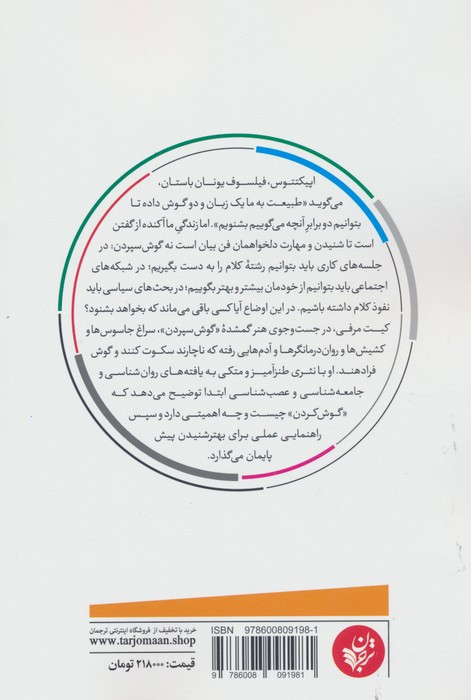 اپیکتتوس، فیلسوف یونان باستان،
می‌گوید «طبیعت به ما یک زبان و دو گوش داده تا
بتوانیم دو برابرِ آنچه می‌گوییم بشنویم». اما زندگیِ ما آکنده از گفتن
است تا شنیدن و مهارت دلخواهمان فن بیان است نه گوش‌سپردن: در
جلسه‌های کاری باید بتوانیم رشتهٔ کلام را به دست بگیریم؛ در شبکه‌های
اجتماعی باید بتوانیم از خودمان بیشتر و بهتر بگوییم؛ در بحث‌های سیاسی باید
نفوذ کلام داشته باشیم. در این اوضاع آیا کسی باقی می‌ماند که بخواهد بشنود؟
کیت مرفی، در جست‌وجوی هنر گمشدهٔ «گوش‌سپردن»، سراغ جاسوس‌ها و
کشیش‌ها و روان‌درمانگرها و آدم‌هایی رفته که ناچارند سکوت کنند و گوش
فرادهند. او با نثری طنزآمیز و متکی به یافته‌های روان‌شناسی و
جامعه‌شناسی و عصب‌شناسی ابتدا توضیح می‌دهد که
«گوش‌کردن» چیست و چه اهمیتی دارد و سپس
راهنمایی عملی برای بهترشنیدن پیش
پایمان می‌گذارد.
خرید با تخفیف از فروشگاه اینترنتی ترجمان
www.tarjomaan.shop
قیمت: ۲۱۸۰۰۰ تومان
ISBN 978600809198-1
9 786008 091981
ترجمان